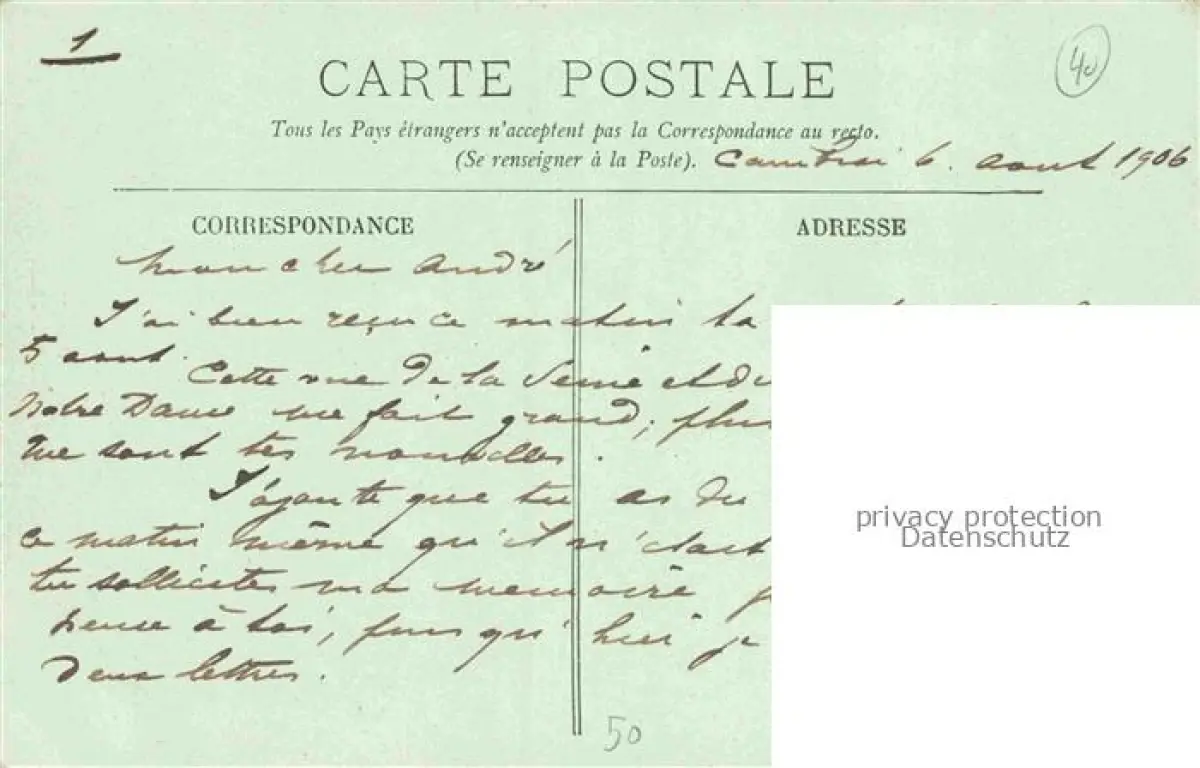 1
40
CARTE POSTALE
Tous les Pays étrangers n'acceptent pas la Correspondance au recto.
(Se renseigner à la Poste). Cambrai 6. aout 1906
CORRESPONDANCE
ADRESSE
Mon cher André
J'ai bien reçu ce matin ta
5 aout. Cette vue de la Seine et de
Notre Dame me fait grand; plus
me sont tes nouvelles.
J'ajoute que tu as du
ce matin même qu'il n'était
tu sollicites ma memoire
pense à toi, puisqu'hier je
deux lettres.
privacy protection
Datenschutz
50